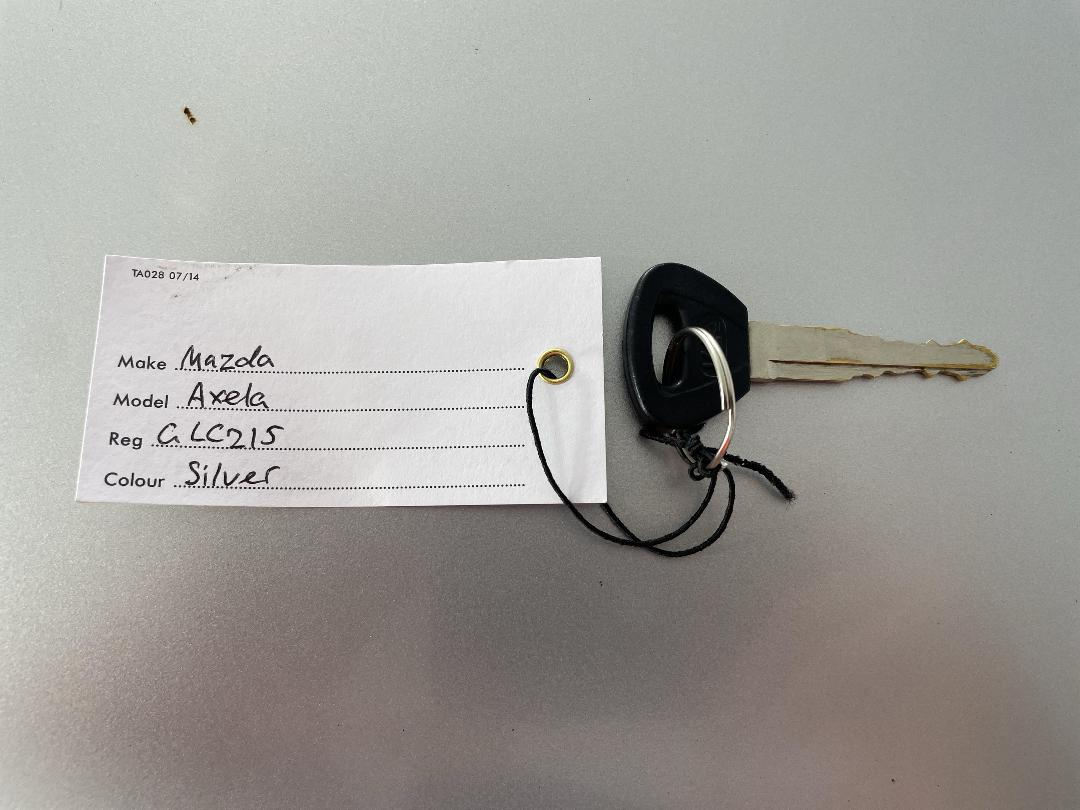 TA028 07/14
Make Mazda
Model Axela
Reg GLC215
Colour Silver